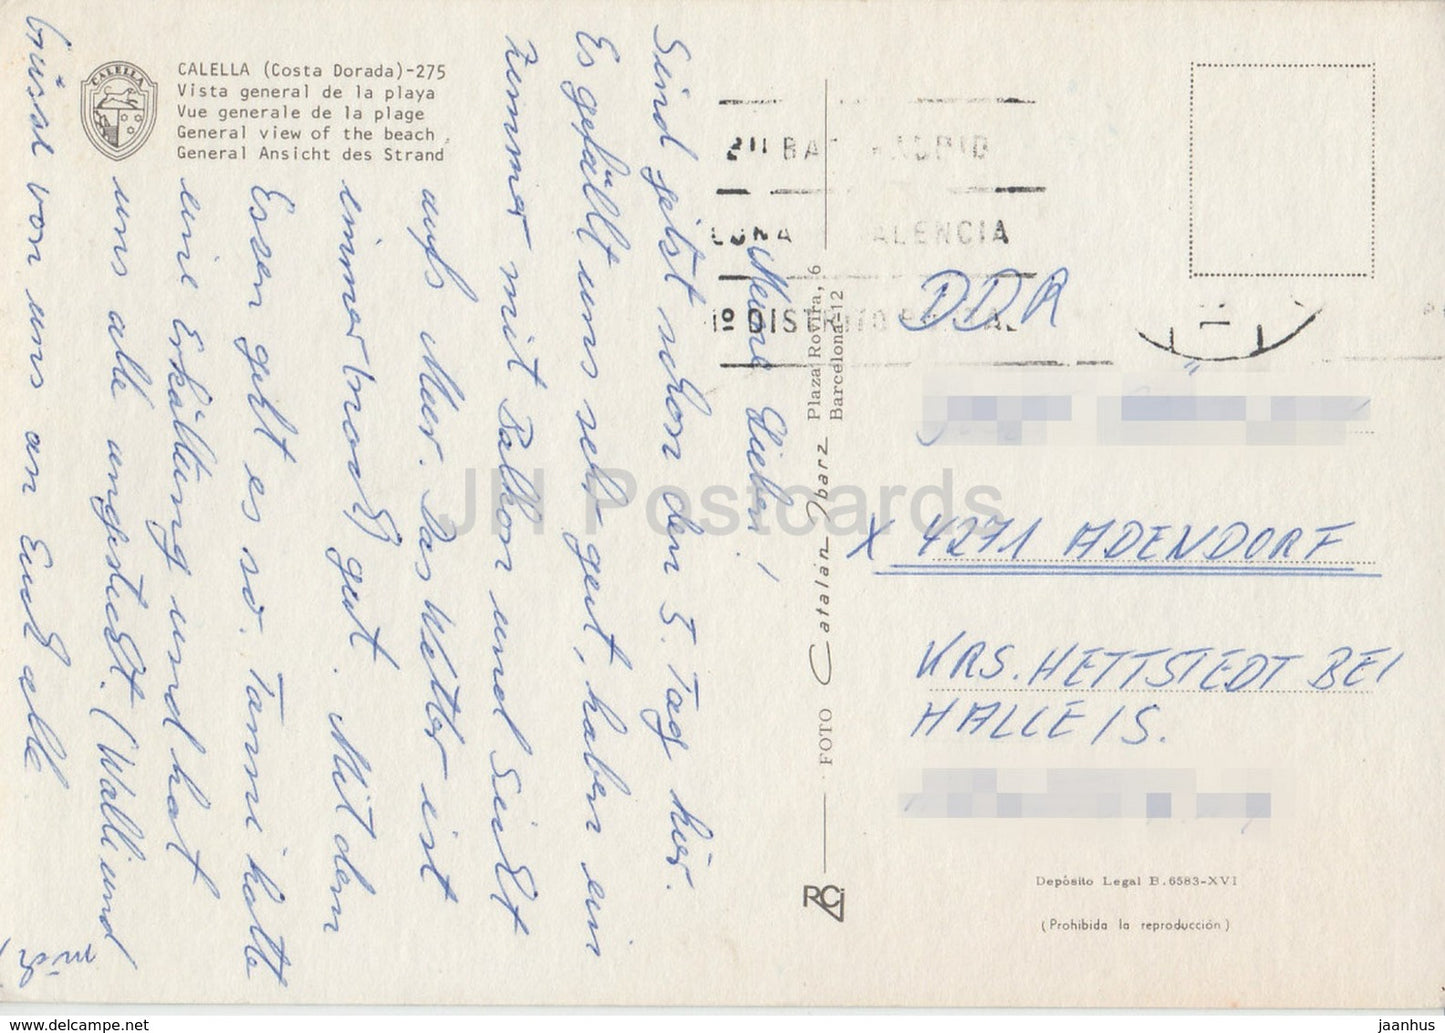 CALELLA
CALELLA (Costa Dorada)-275
Vista general de la playa
Vue generale de la plage
General view of the beach
General Ansicht des Strand
Meine Lieben!
Sind jetzt schon den 5. Tag hier.
Es gefällt uns sehr gut, haben ein
Zimmer mit Balkon und Sicht
aufs Meer. Das Wetter ist
immer (noch) gut. Mit dem
Essen geht es so. Tanni hatte
eine Erkältung und hat
uns alle angesteckt. (Walli und
mich)
Grüsse von uns an Euch alle
FOTO Catalán Ibarz Plaza Rovira, 6
Barcelona-12
RCJ
MADRID
VALENCIA
DISTRITO POSTAL
DDR
X 4271 ADENDORF
KRS. HETTSTEDT BEI
HALLE/S.
Depósito Legal B. 6583-XVI
(Prohibida la reproducción)
JH Postcards
www.delcampe.net
jaanhus